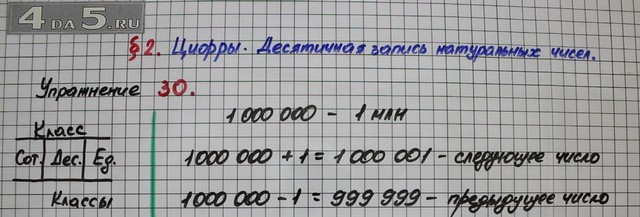 4 DA 5 .RU
§ 2. Цифры. Десятичная запись натуральных чисел.
Упражнение 30.
1 000 000 - 1 млн
Класс
Сот. Дес. Ед.
1000 000 + 1 = 1 000 001 - следующее число
Классы
1000 000 - 1 = 999 999 - предыдущее число